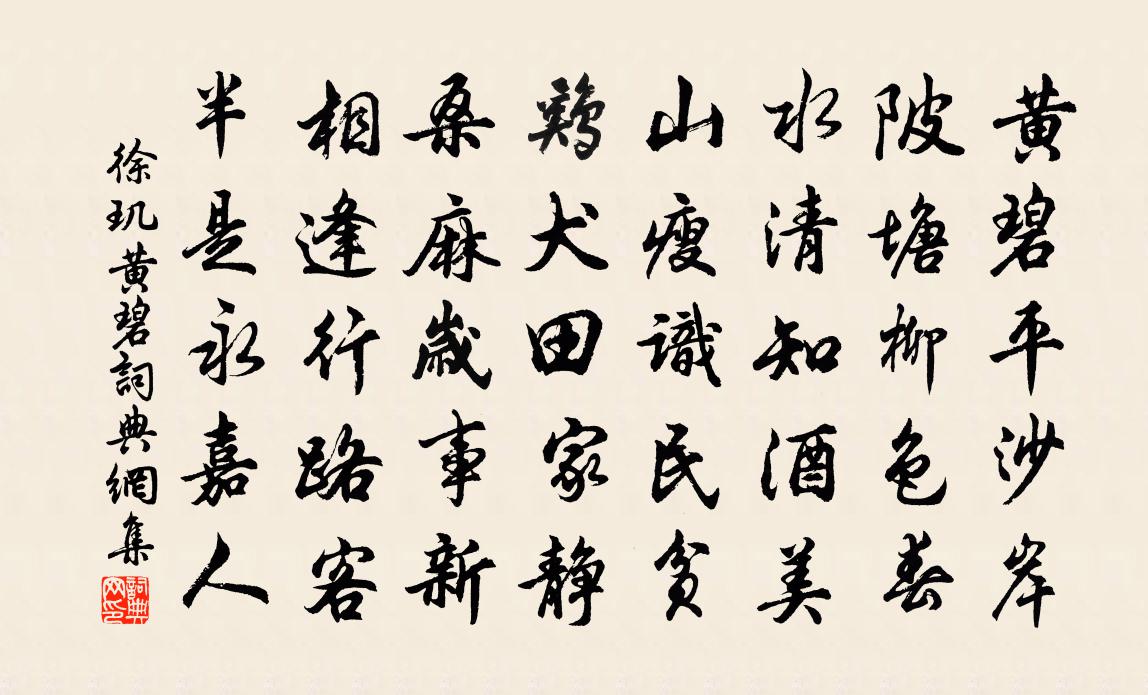 黄碧平沙岸
陂塘柳色春
水清知酒美
山瘦識民貧
鶏犬田家静
桑麻歲事新
相逢行路客
半是永嘉人
徐玑黄碧詞典網集
詞典网印